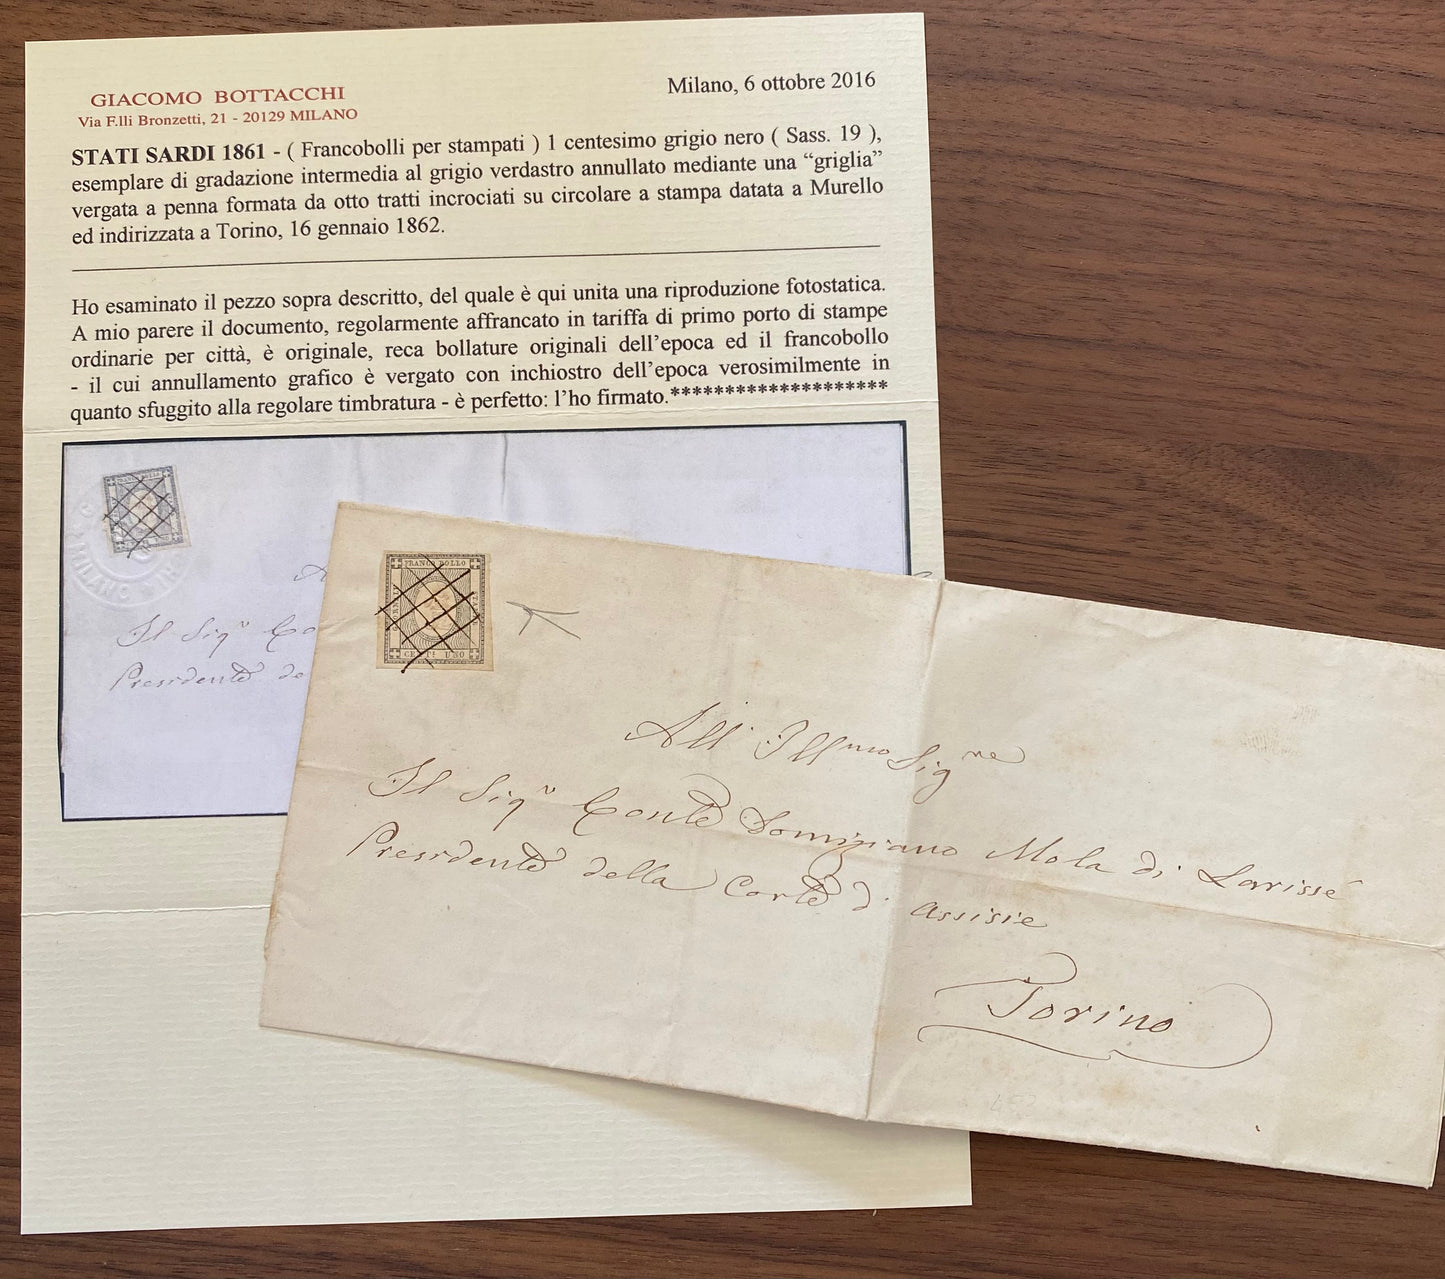 GIACOMO BOTTACCHI
Via F.lli Bronzetti, 21 - 20129 MILANO
Milano, 6 ottobre 2016
STATI SARDI 1861 - ( Francobolli per stampati ) 1 centesimo grigio nero ( Sass. 19 ),
esemplare di gradazione intermedia al grigio verdastro annullato mediante una “griglia”
vergata a penna formata da otto tratti incrociati su circolare a stampa datata a Murello
ed indirizzata a Torino, 16 gennaio 1862.
Ho esaminato il pezzo sopra descritto, del quale è qui unita una riproduzione fotostatica.
A mio parere il documento, regolarmente affrancato in tariffa di primo porto di stampe
ordinarie per città, è originale, reca bollature originali dell’epoca ed il francobollo
- il cui annullamento grafico è vergato con inchiostro dell’epoca verosimilmente in
quanto sfuggito alla regolare timbratura - è perfetto: l’ho firmato.********************
FRANCO BOLLO
MILANO
Il Sigr Co
Presidente de
FRANCO BOLLO
CENTI UNO
All' Illmo Sigre
Il Sigr Conte Domiziano Mola di Larissé
Presidente della Corte d' Assisie
Torino